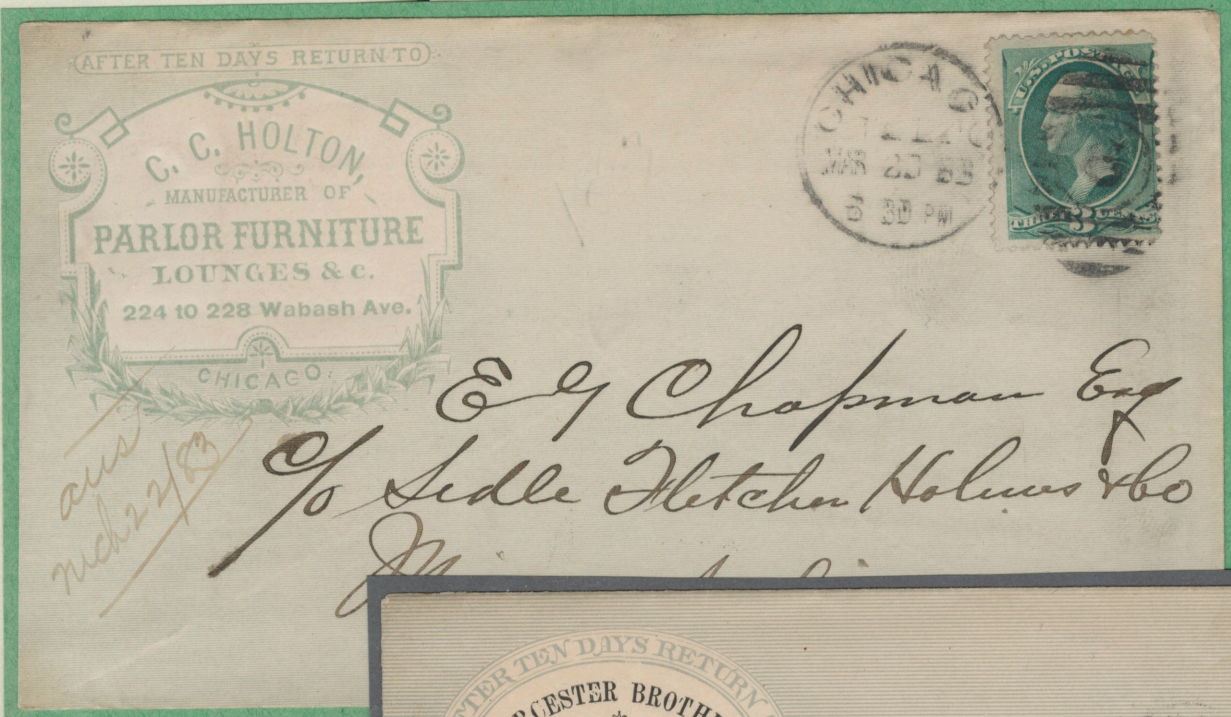 AFTER TEN DAYS RETURN TO
C. C. HOLTON,
MANUFACTURER OF
PARLOR FURNITURE
LOUNGES & c.
224 to 228 Wabash Ave.
CHICAGO.
CHICAGO
MAR 20 83
8 30 PM
U.S. POSTAGE
THREE 3 CENTS
E G Chapman Esq
c/o Sidle Fletcher Holmes & Co
ans
mch 22/83
AFTER TEN DAYS RETURN
CESTER BROTH